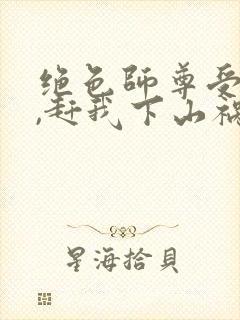 绝色师尊受
,赶我下山祸
星海拾貝